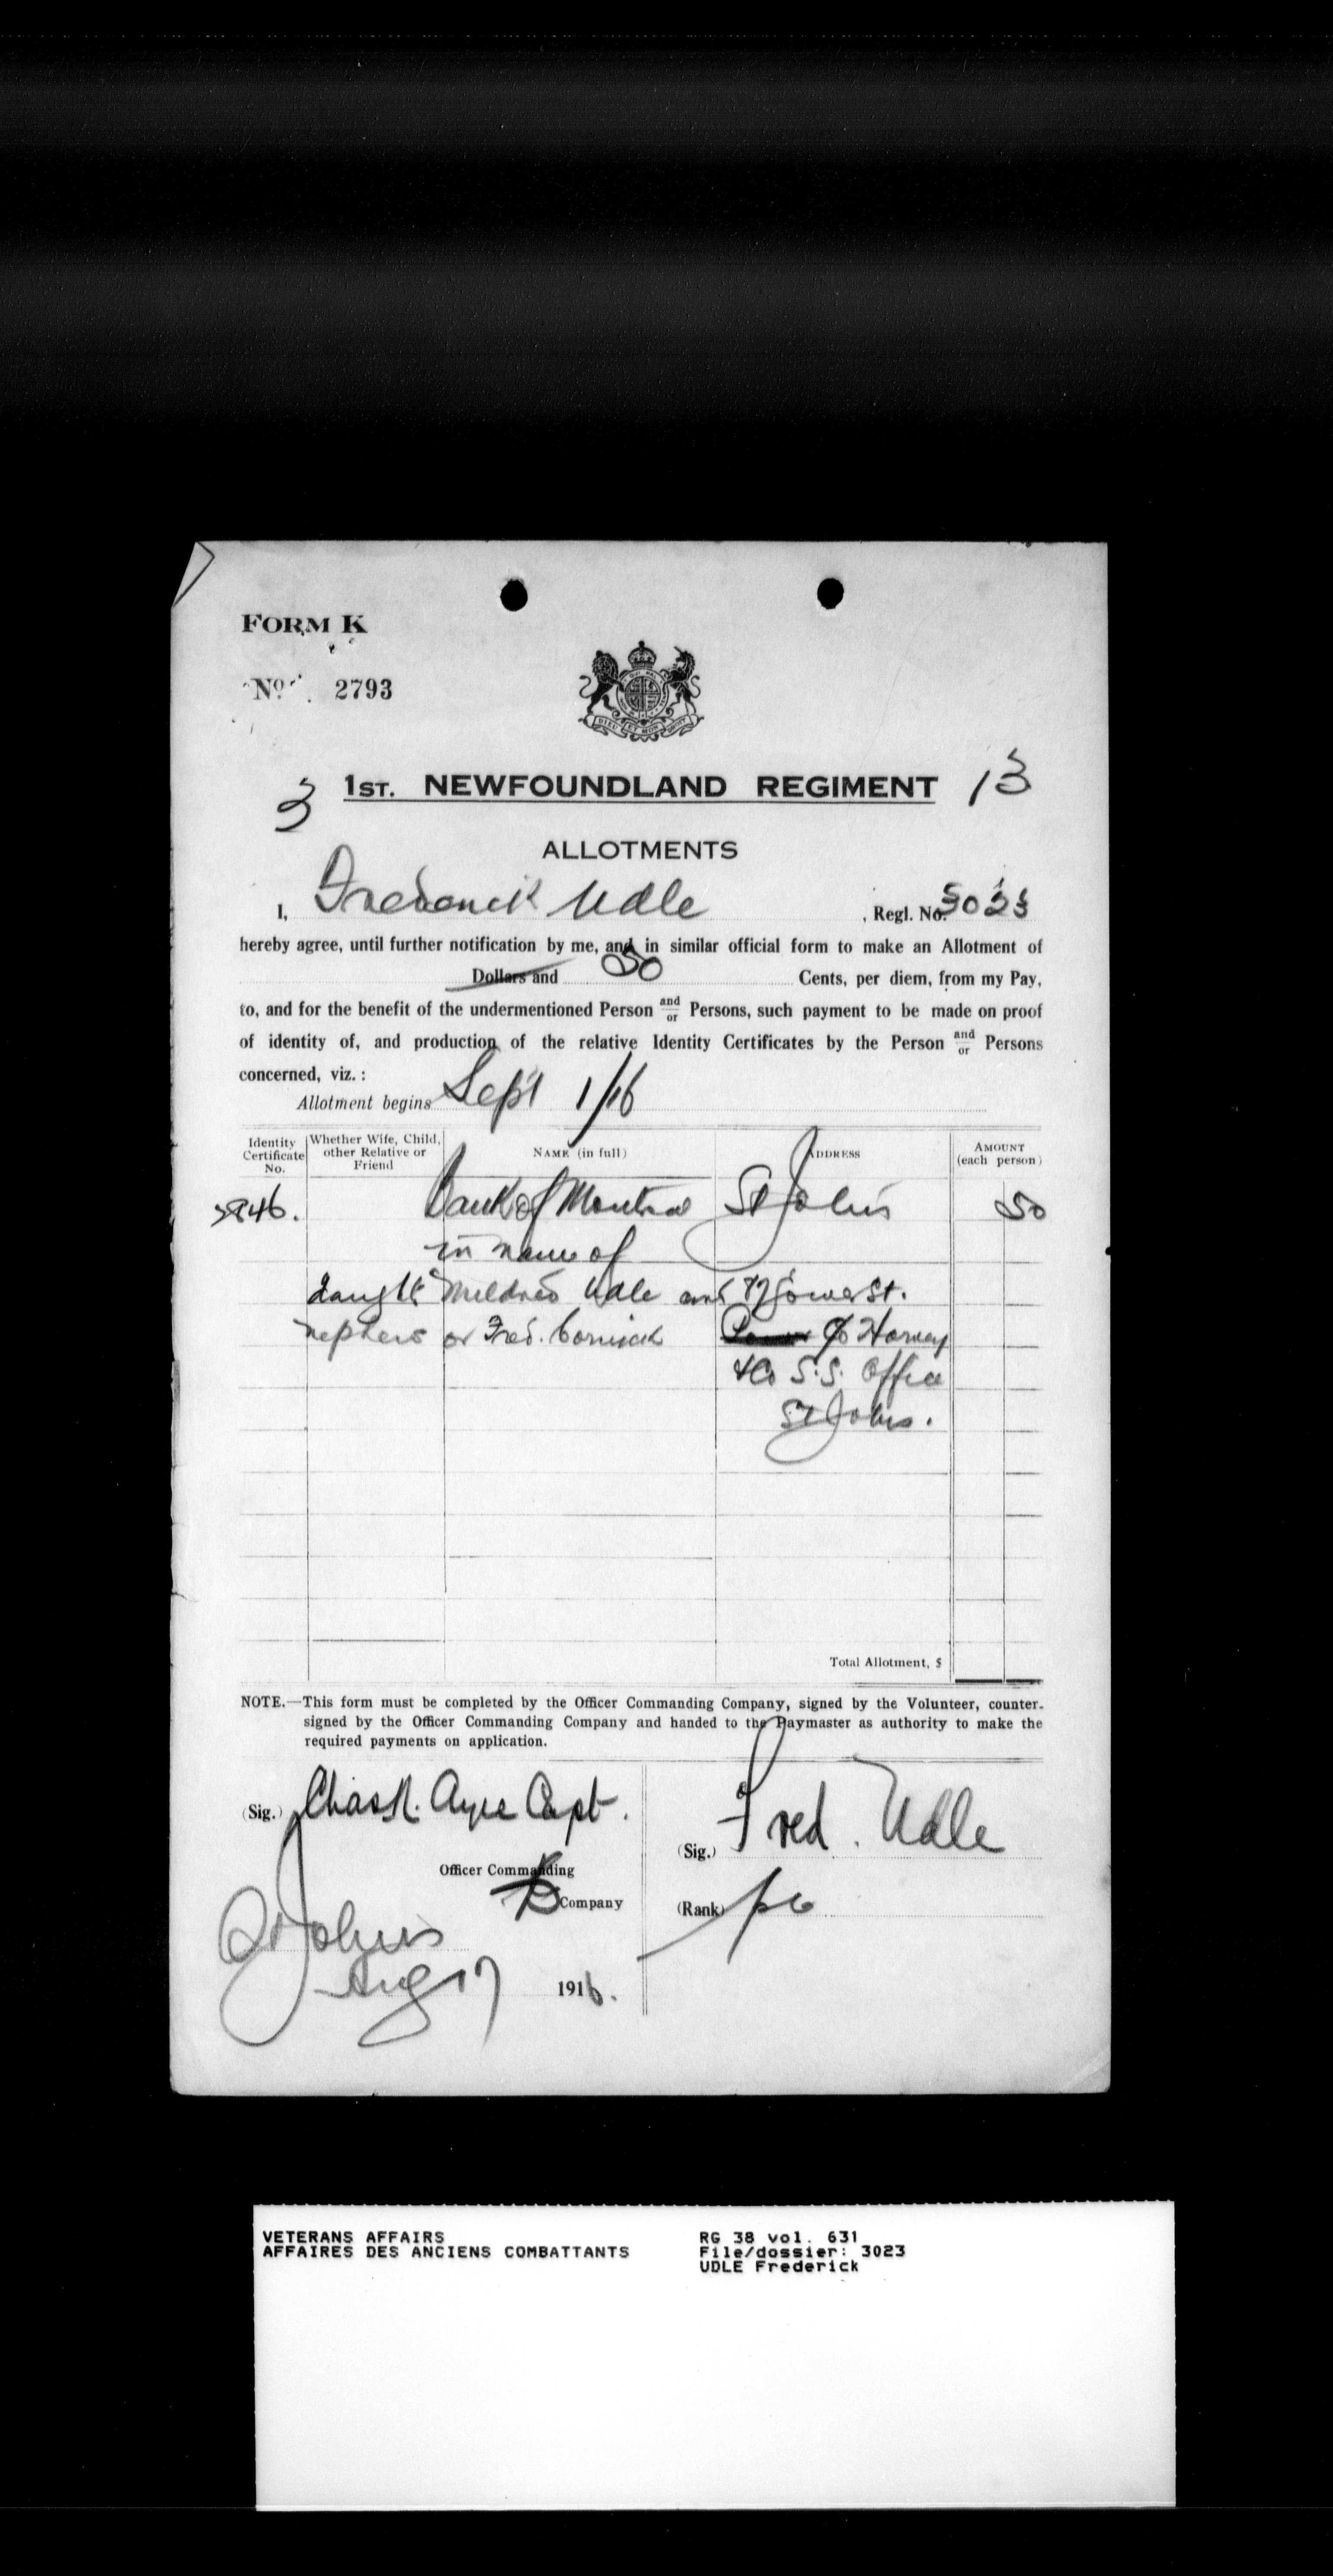 FORM K
No. 2793
DIEU ET MON DROIT
3 1ST. NEWFOUNDLAND REGIMENT 13
ALLOTMENTS
I, Frederick Udle , Regl. No. 3023
hereby agree, until further notification by me, and in similar official form to make an Allotment of
Dollars and 50 Cents, per diem, from my Pay,
to, and for the benefit of the undermentioned Person and/or Persons, such payment to be made on proof
of identity of, and production of the relative Identity Certificates by the Person and/or Persons
concerned, viz. :
Allotment begins Sept 1/16
Identity Certificate No. Whether Wife, Child, other Relative or Friend NAME (in full) ADDRESS AMOUNT (each person)
Bank of Montreal St John's 50
in name of
daught Mildred Udle and Gower St.
nephew or Fred. Cornick c/o Harvey
& Co S.S. Office
St Johns.
Total Allotment, $
NOTE.—This form must be completed by the Officer Commanding Company, signed by the Volunteer, counter-
signed by the Officer Commanding Company and handed to the Paymaster as authority to make the
required payments on application.
(Sig.) Chas R. Ayre Capt.
Officer Commanding
Company
(Sig.) Fred. Udle
(Rank) pte
St Johns
Aug 17 1916.
VETERANS AFFAIRS
AFFAIRES DES ANCIENS COMBATTANTS
RG 38 vol. 631
File/dossier: 3023
UDLE Frederick